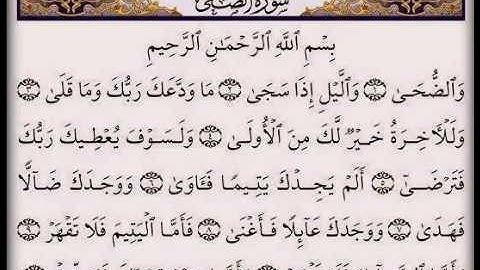 سورة الضحى
بِسْمِ اللَّهِ الرَّحْمَٰنِ الرَّحِيمِ
وَالضُّحَىٰ ۝١ وَاللَّيْلِ إِذَا سَجَىٰ ۝٢ مَا وَدَّعَكَ رَبُّكَ وَمَا قَلَىٰ ۝٣
وَلَلْآخِرَةُ خَيْرٌ لَّكَ مِنَ الْأُولَىٰ ۝٤ وَلَسَوْفَ يُعْطِيكَ رَبُّكَ
فَتَرْضَىٰ ۝٥ أَلَمْ يَجِدْكَ يَتِيمًا فَـَٔاوَىٰ ۝٦ وَوَجَدَكَ ضَآلًّا
فَهَدَىٰ ۝٧ وَوَجَدَكَ عَآئِلًا فَأَغْنَىٰ ۝٨ فَأَمَّا الْيَتِيمَ فَلَا تَقْهَرْ ۝٩